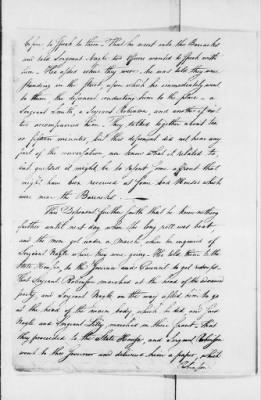 before to speak to them. That he went into the Barracks
and told Sergeant Nagle two Officers wanted to speak with
him. He asked where they were, he was told they were
standing in the Street, upon which he immediately went
to them, this deponent conducting him to the place
Sergeant Smith, a Sergeant Robinson, and another
accompanied him. They talked together about ten
or fifteen minutes, but this deponent did not hear any
part of the conversation nor know what it related to,
but guessed it might be to resent some affront that
might have been received at some bad Houses which
were near the Barracks.
This Deponent further saith that he knew nothing
further until next day when the long roll was beat,
and the men got under a March, when he enquired of
Sergeant Nagle where they were going. He told them to the
State House, to the Governor and Council to get redress.
That Sergeant Robinson marched at the head of the
party, and Sergeant Nagle on the way asked him to go
at the head of the main body, which he did and
Nagle and Sergeant Lilly marched in their front, that
they proceeded to the State House, and Sergeant Robinson
went to the Governor and delivered him a paper, which